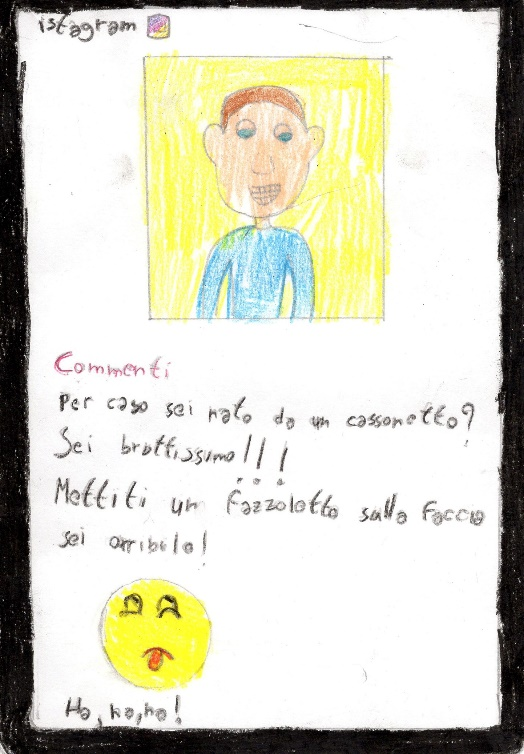 istagram
Commenti
Per caso sei nato da un cassonetto?
Sei bruttissimo!!!
Mettiti un fazzoletto sulla faccia
sei orribile!
Ha, ha, ha!